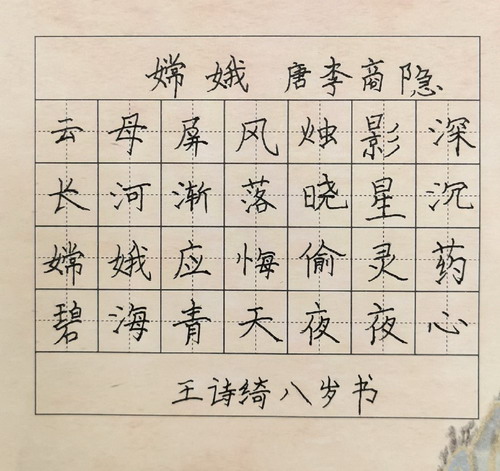 嫦娥 唐李商隐
云母屏风烛影深
长河渐落晓星沉
嫦娥应悔偷灵药
碧海青天夜夜心
王诗绮八岁书